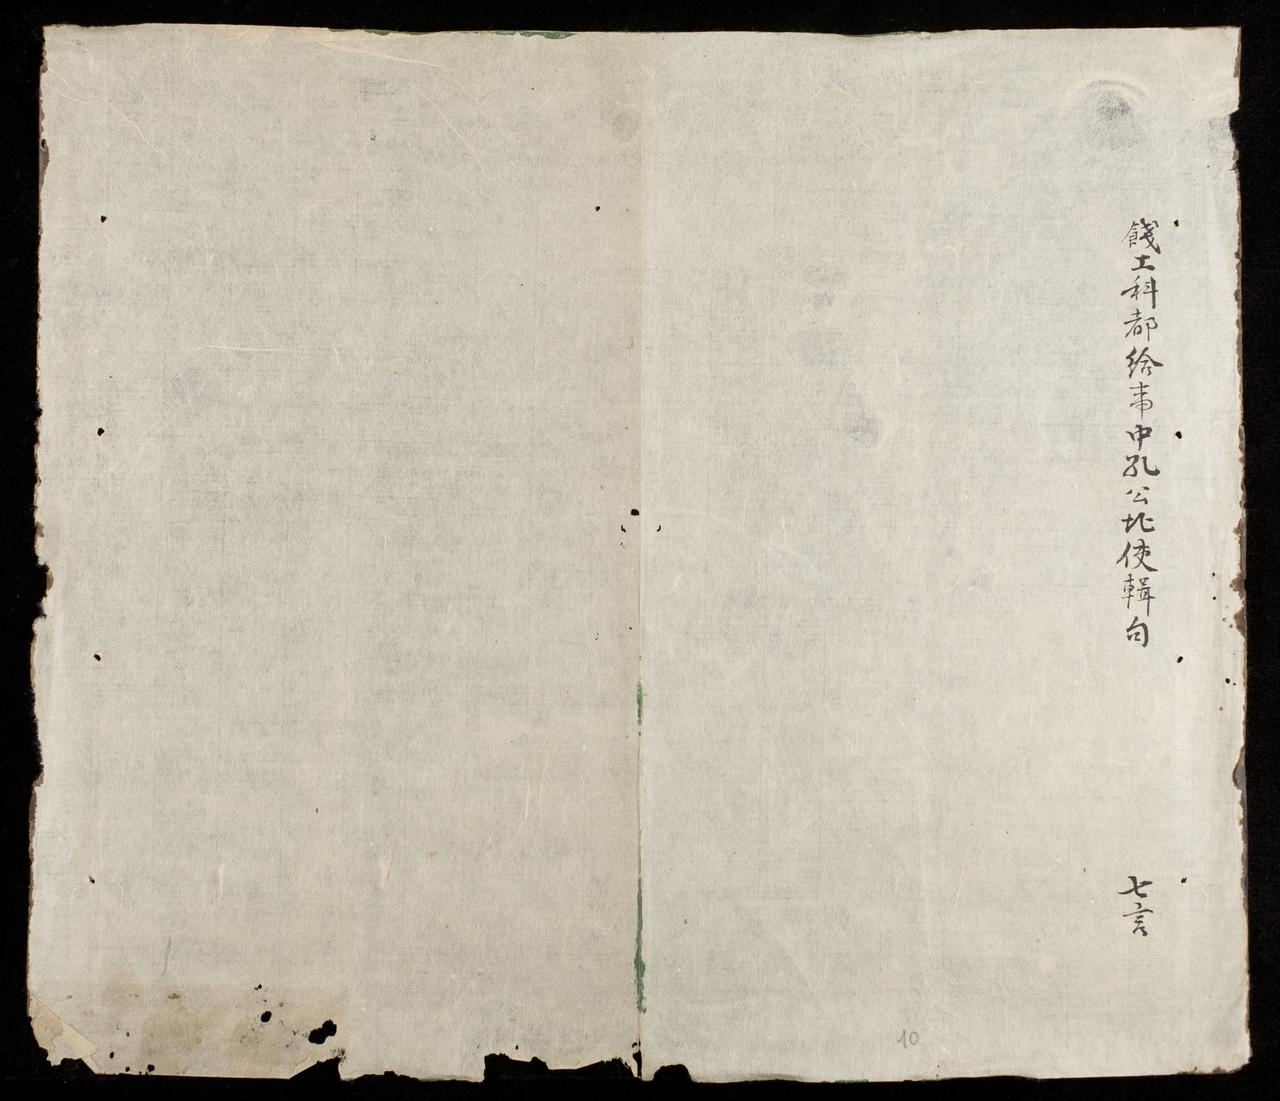 餞工科都給事中孔公北使輯句 七言
10